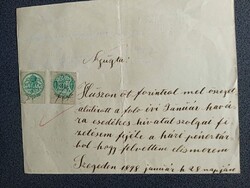 Nyugta
Huszon öt forintról mely öszeget
alulírott a folyó évi Január havá-
ra esedékes hivatalszolgai fi-
zetésem fejébe a házi pénztár-
ból hogy felvettem elismerem
Szegeden 1898 január hó 28 napján